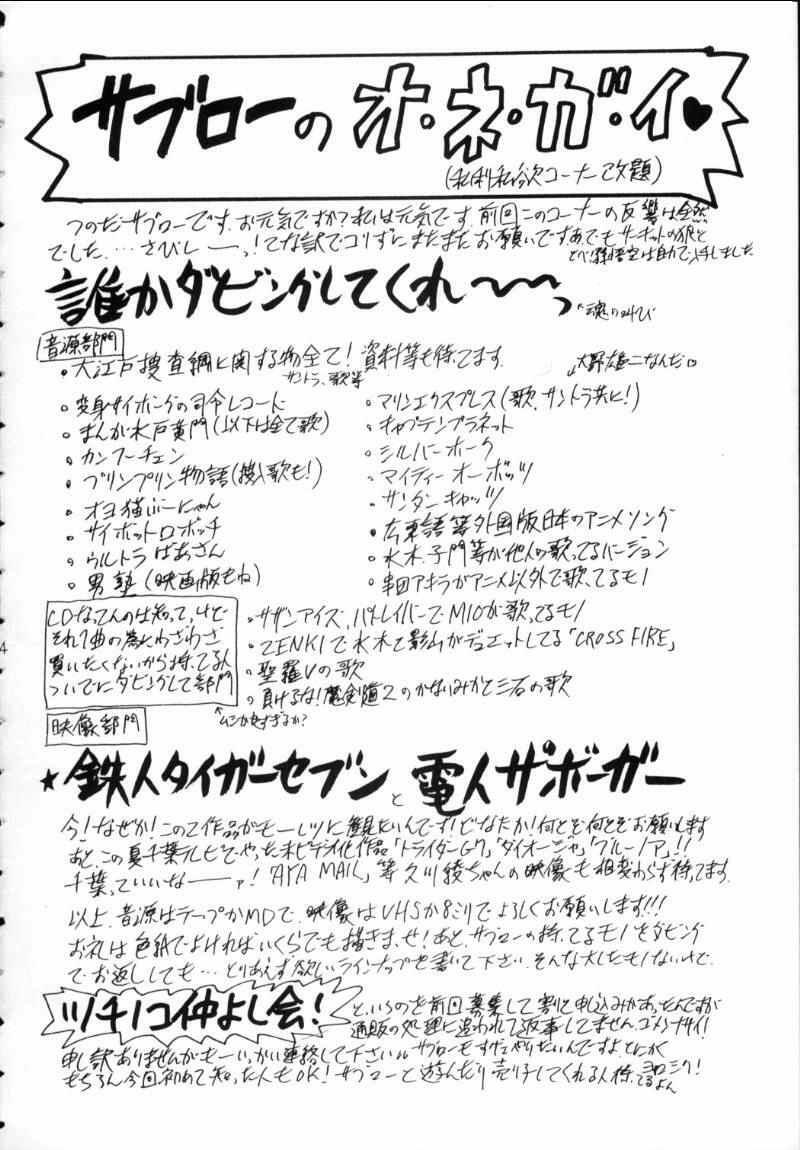 サブローの オ・ネ・ガ・イ♥
(私利私欲コーナー改題)
つのだサブローです。お元気ですか?私は元気です。前回このコーナーの反響は全然
でした…さびしーーっ!てな訳でコリずにまたまたお願いですあ、でもサーキットの狼と
とべ!孫悟空は自力で入手しました。
誰かダビングしてくれ〜〜っ
↖魂の叫び
音源部門
・大江戸捜査網に関する物全て!資料等も待ってます。
サントラ、歌等
↓大野雄二なんだ
・変身サイボーグの司令レコード
・まんが水戸黄門(以下は全て歌)
・カンフーチェン
・プリンプリン物語(挿入歌も!)
・オヨ猫ぶーにゃん
・サイボットロボッチ
・ウルトラばあさん
・男塾(映画版もね)
・マリンエクスプレス(歌、サントラ共に!)
・キャプテンプラネット
・シルバーホーク
・マイティーオーボッツ
・サンダーキャッツ
・広東語等外国版日本のアニメソング
・水木、子門等が他人の歌ってるバージョン
・串田アキラがアニメ以外で歌ってるモノ
CDなってんのは知ってっけど
それ1曲の為にわざわざ
買いたくないから持ってる人
ついでにダビングして部門
↖ムシが良すぎるか?
・サザンアイズ、パトレイバーでMIOが歌ってるモノ
・ZENKIで水木と影山がデュエットしてる「CROSS FIRE」
・聖羅Vの歌
・負けるな!魔剣道2のかないみかと三石の歌
映像部門
★鉄人タイガーセブンと電人ザボーガー
今!なぜか!この2作品がモーレツに観たいんです!どなたか!何とぞ何とぞお願いします
あと、この夏千葉テレビでやった未ビデオ化作品「トライダーG7」「ダイオージャ」「ブルーノア」!!
千葉っていいなーーァ!「AYA MAIL」等久川綾ちゃんの映像も相変わらず待ってます。
以上、音源はテープかMDで、映像はVHSか8ミリでよろしくお願いします!!!
お礼は色紙でよければいくらでも描きまっせ!あと、サブローの持ってるモノをダビング
でお返ししても…とりあえず欲しいラインナップを書いて下さい。そんな大したモノないけど
ツチノコ仲よし会!
というのを前回募集して割と申込みがあったんですが
通販の処理に追われて返事してません、ゴメンナサイ!
申し訳ありませんがもーいっかい連絡して下さい。サブローもすげえやりたいんですよ、とにかく
もちろん今回初めて知った人もOK!サブローと遊んだり売り子してくれる人待ってるよん ヨロシク!
4